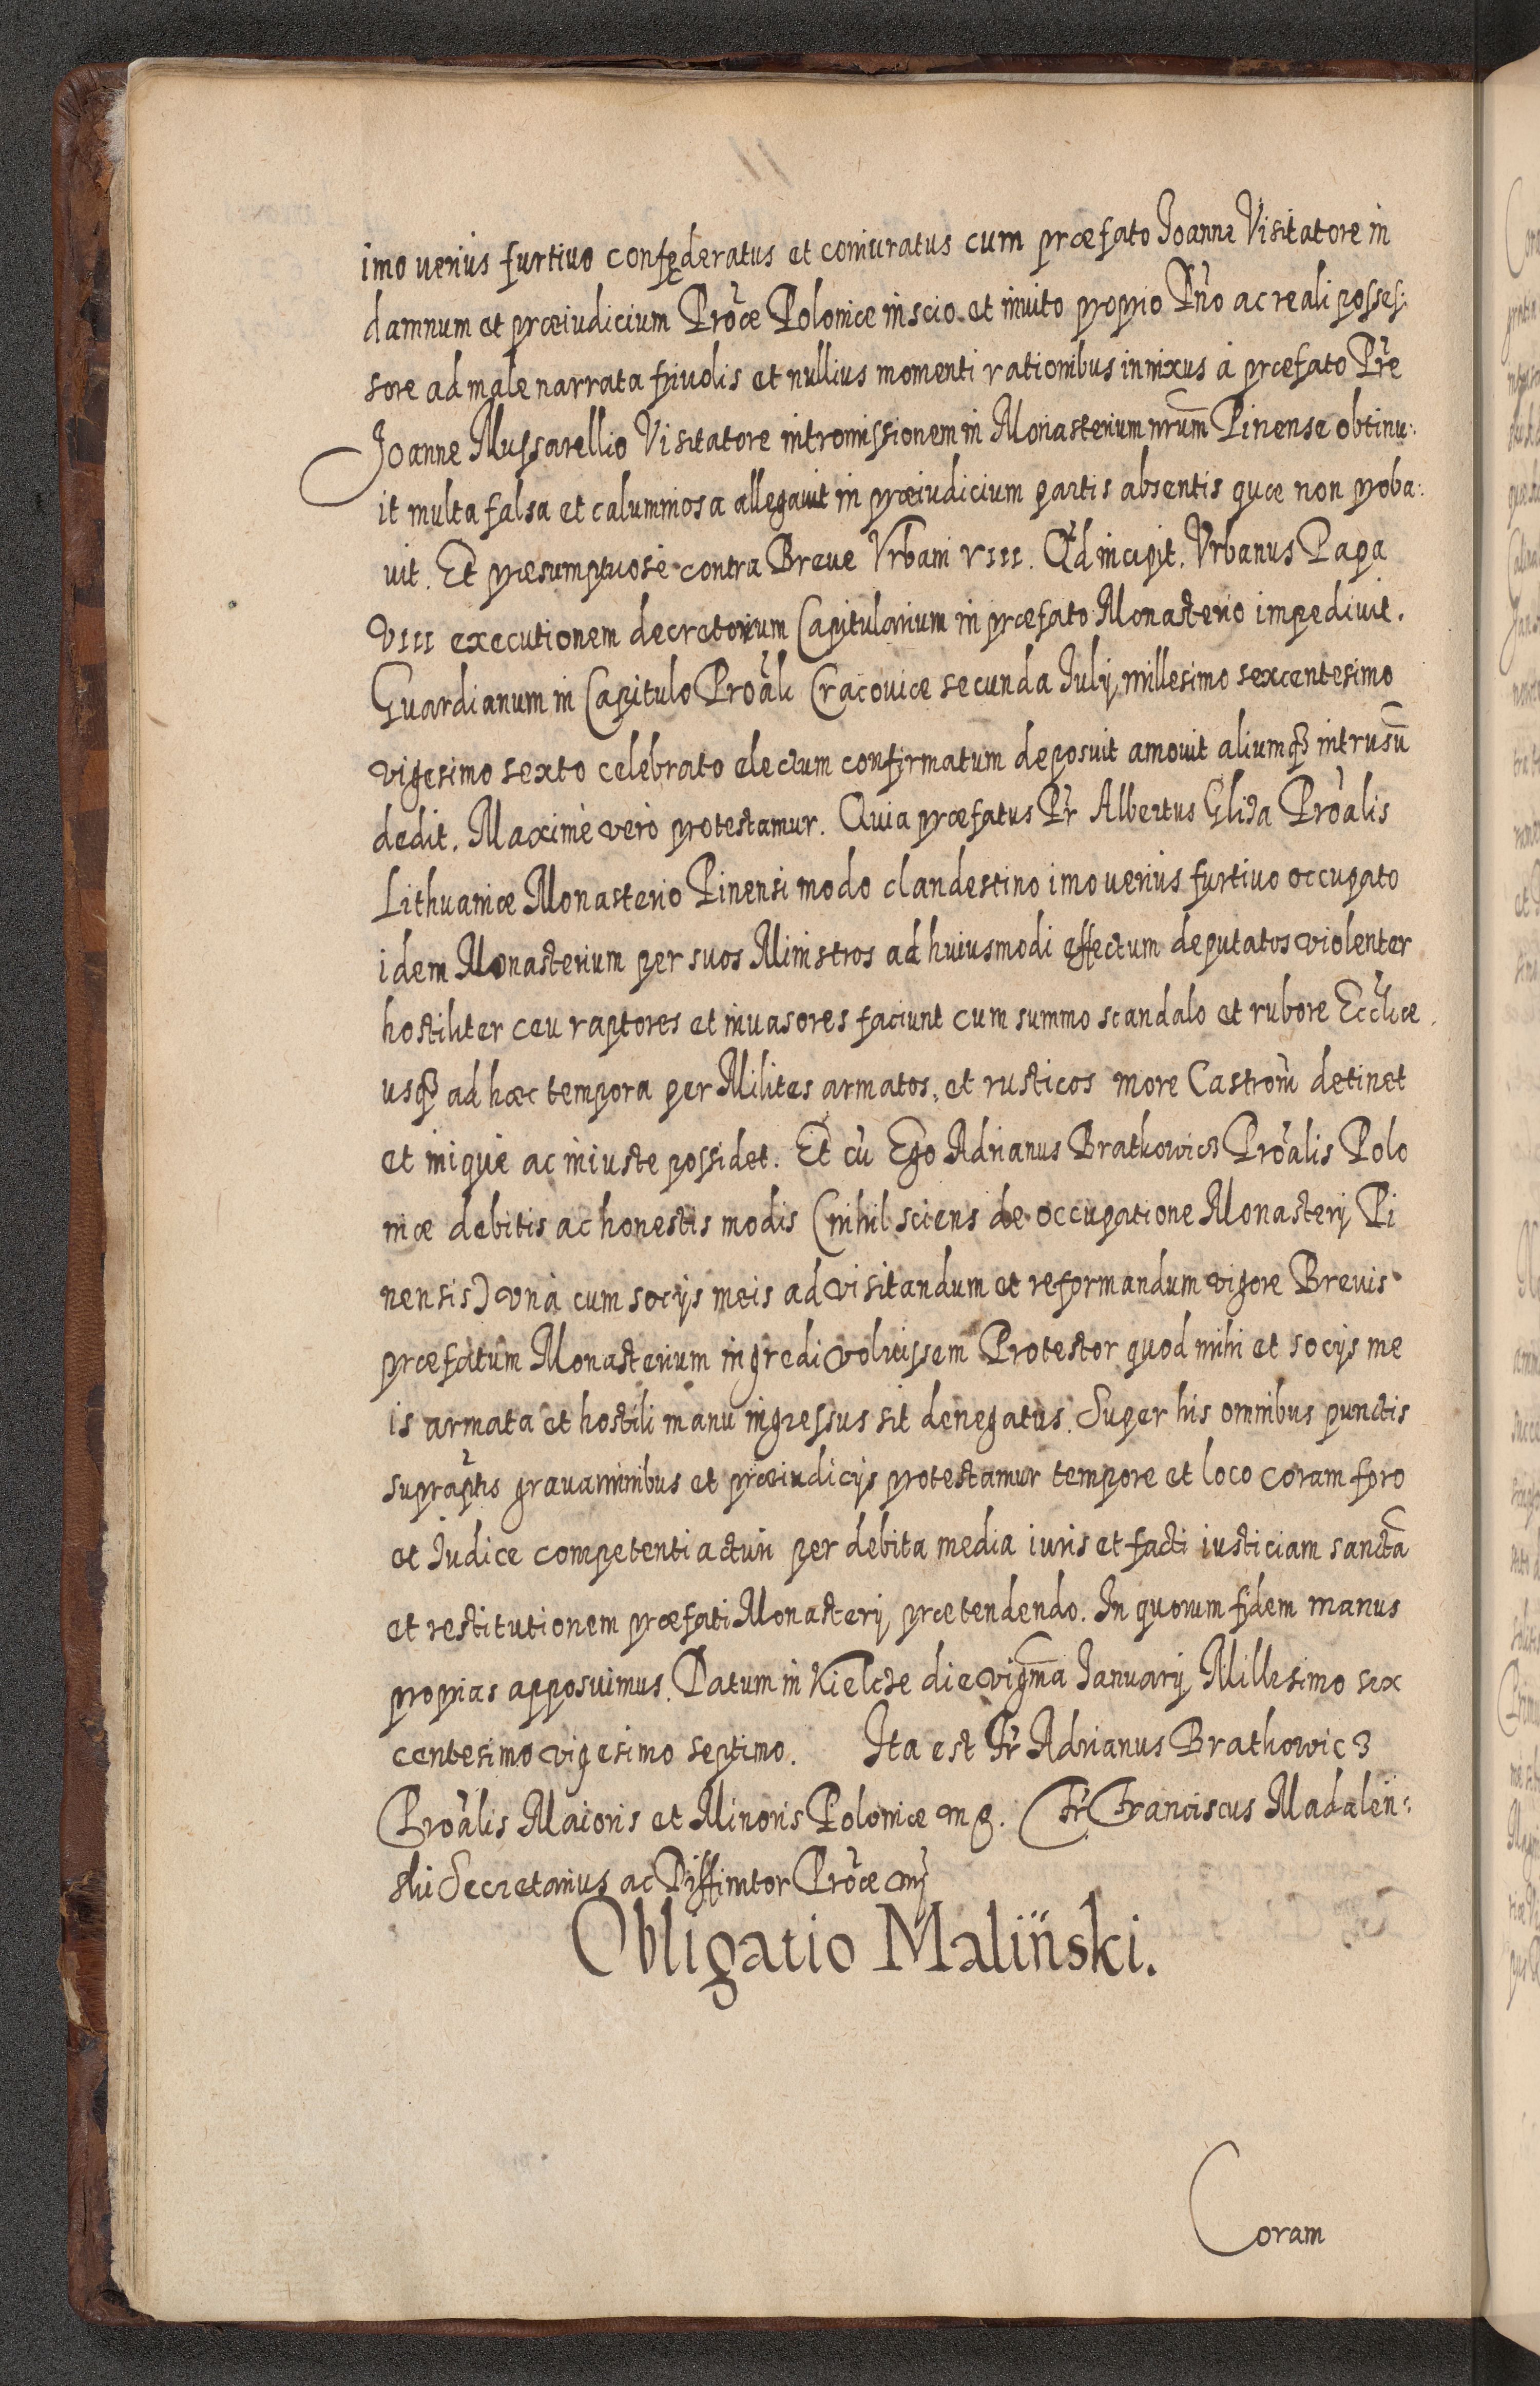 imo verius furtivo confęderatus et coniuratus cum præfato Joanne Visitatore in
damnum et præiudicium Proũæ Poloniæ inscio et invito proprio Pño ac reali posses:
sore ad male narrata frivolis et nullius momenti rationibus innixus à præfato Pre
Joanne Mussarellio Visitatore intromissionem in Monasterium nrum Pinense obtinu:
it multa falsa et calumniosa allegavit in præiudicium partis absentis quæ non proba:
vit. Et præsumptuosè contra Breve Vrbani VIII. Qd incipit. Vrbanus Papa
VIII executionem decretorum Capitularium in præfato Monasterio impedivit.
Guardianum in Capitulo Proãli Cracoviæ secunda July, millesimo sexcentesimo
vigesimo sexto celebrato electum confirmatum deposuit amovit aliumq₃ intrusũ
dedit. Maximè verò protestamur. Quia præfatus Pr Albertus Gliza Proãlis
Lithuaniæ Monasterio Pinensi modo clandestino imo verius furtivo occupato
idem Monasterium per suos Ministros ad huiusmodi effectum deputatos violenter
hostiliter ceu raptores et invasores faciunt cum summo scandalo et rubore Ecćliæ
usq₃ ad hæc tempora per Milites armatos, et rusticos more Castrorũ detinet
et iniquè ac iniuste possidet. Et cũ Ego Adrianus Bratkowicz Proãlis Polo
niæ debitis ac honestis modis (nihil sciens de occupatione Monasterij Pi
nensis) vnà cum socijs meis ad visitandum et reformandum vigore Brevis
præfatum Monasterium ingredi voluissem Protestor quod mihi et socijs me
is armata et hostili manu ingressus sit denegatus. Super his omnibus punctis
supraptis gravaminibus et præiudicijs protestamur tempore et loco coram foro
et Iudice competenti acturi per debita media iuris et facti iusticiam sanctã
et restitutionem præfati Monasterij prætendendo. In quorum fidem manus
proprias apposuimus. Datum in Kielcze die vigma Januarij Millesimo sex
centesimo vigesimo septimo. Ita est Fr Adrianus Bratkowicz
Proãlis Maioris et Minoris Poloniæ mp. Fr Franciscus Madaleń:
ski Secretarius ac Diffinitor Proæ mp
Obligatio Maliński.
Coram